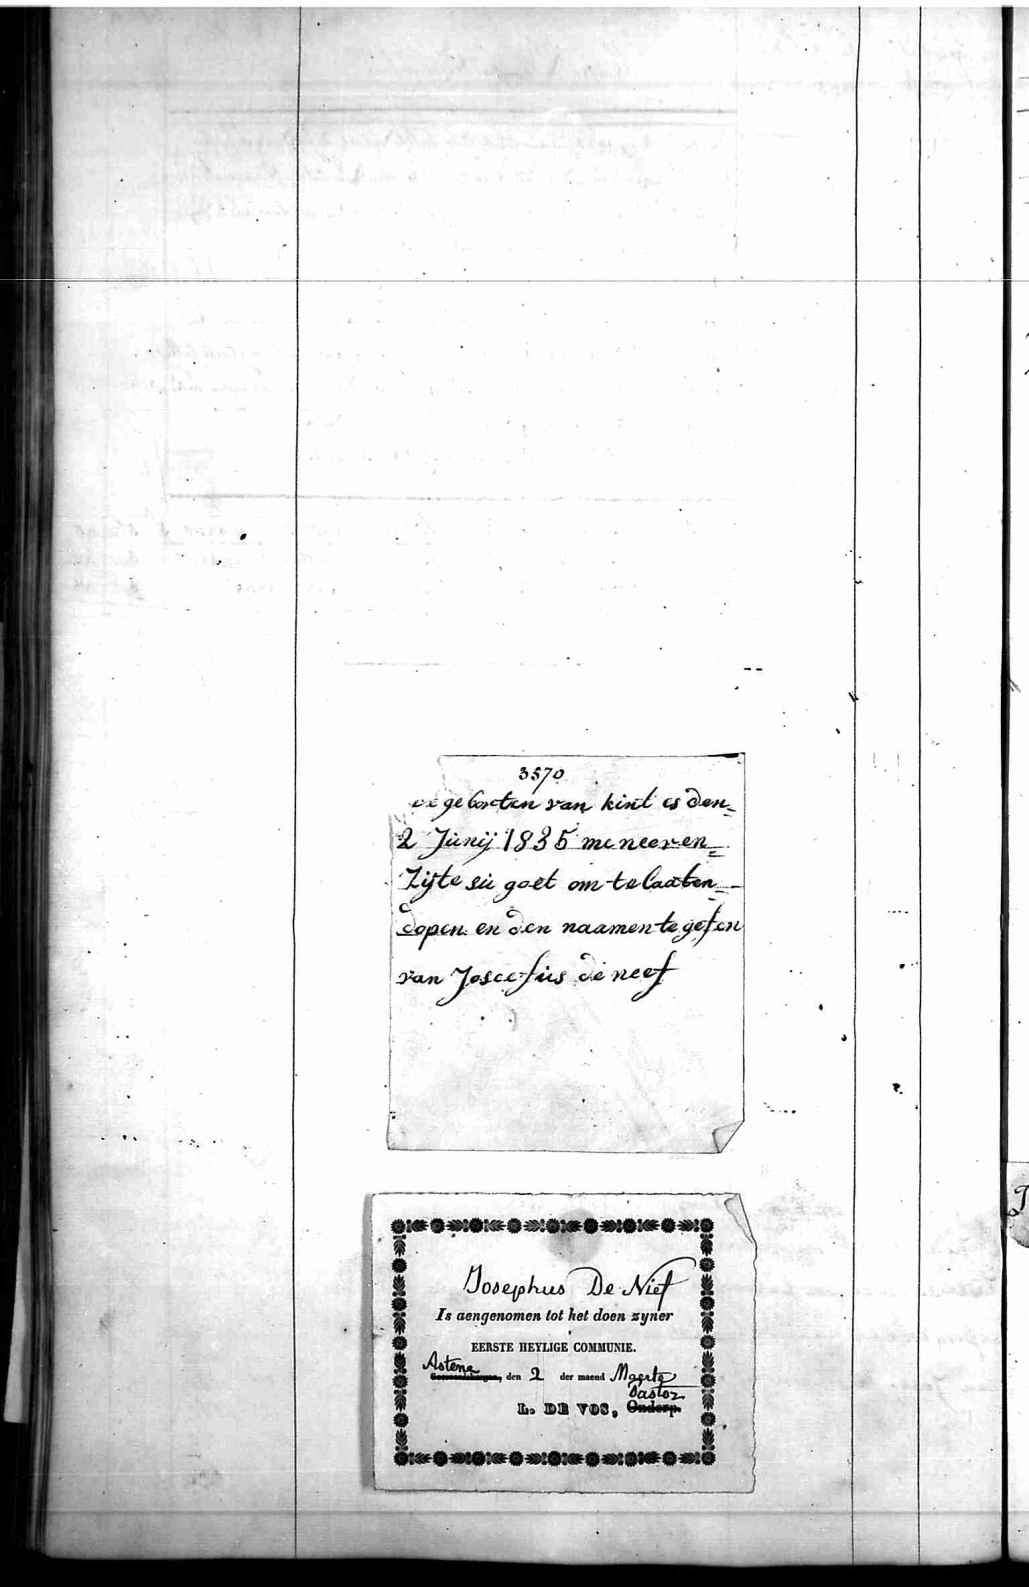 3570
de geborten van kint es den=
2 Junij 1835 meneer en=
Zijte sii goet om te laaten=
dopen en den naamen te gefen
van Joseefus de neef
Josephus De Nief
Is aengenomen tot het doen zyner
EERSTE HEYLIGE COMMUNIE.
Astene
den 2 der maend Maerte
Pastor
L. DE VOS, Onderp.